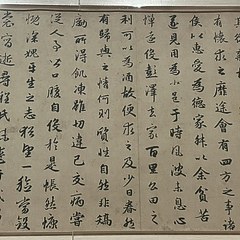 有懷求之靡途會有四方之事諸
侯以惠愛為德家叔以余貧苦
遂見用為小邑于時風波未息心
憚遠役彭澤去家百里公田之
利可以為酒故便求之及少日眷然
有歸與之情何則質性自然非矯
勵所得飢凍雖切違己交病嘗
從人事皆口腹自役於是悵然慷
慨深愧平生之志猶望一稔當斂
裳宵逝尋程氏妹